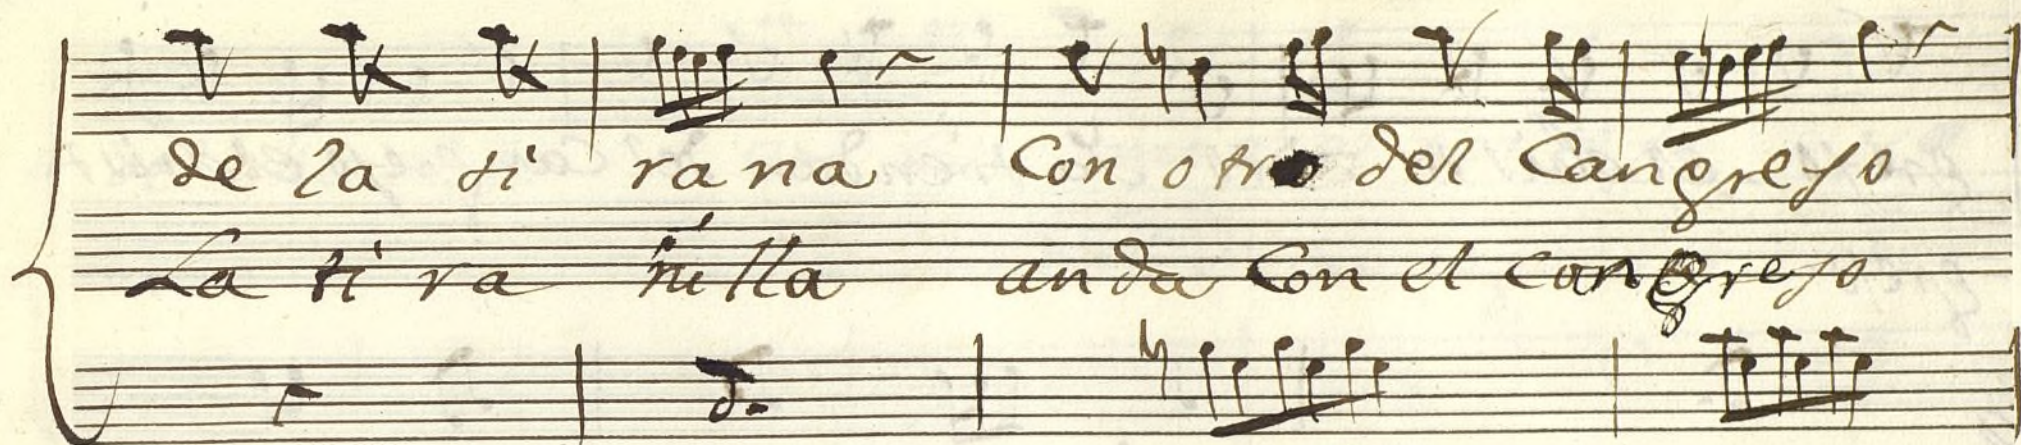 de la ti rana Con otro del Cangrejo
La ti ra nilla anda Con el cangrejo